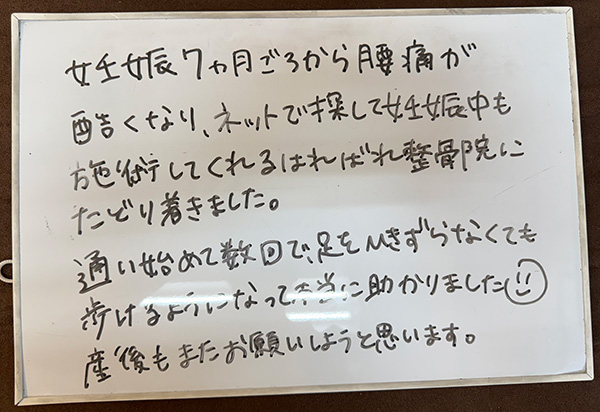 妊娠7ヵ月ごろから腰痛が
酷くなり、ネットで探して妊娠中も
施術してくれるはればれ整骨院に
たどり着きました。
通い始めて数回で、足をひきずらなくても
歩けるようになって本当に助かりました
産後もまたお願いしようと思います。